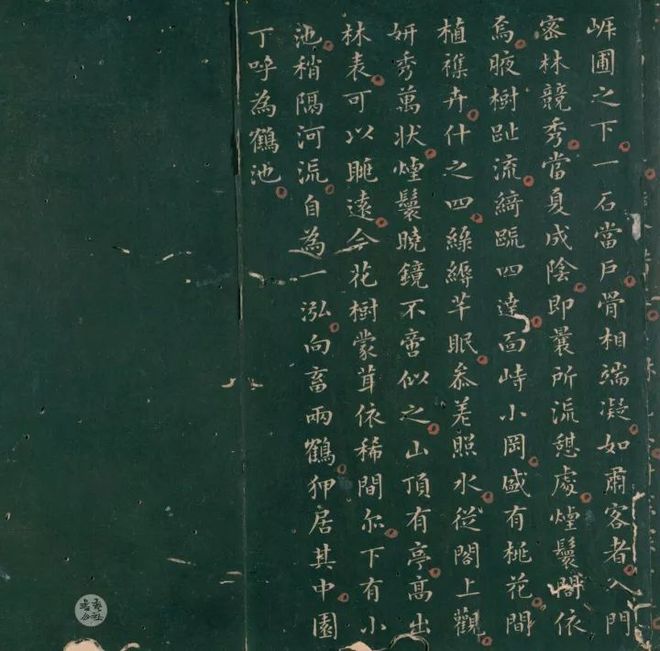 崕圃之下一石當戶骨相端凝如肅客者入門
密林競秀當夏成陰即曩所流憩處煙鬟閣依
焉腋樹趾流綺疏四達面峙小岡盛有桃花間
植襍卉什之四綠縟芊眠叅差照水從閣上觀
妍秀萬狀煙鬟曉鏡不啻似之山頂有亭高出
林表可以眺遠今花樹蒙茸依稀間尒下有小
池稍隔河流自為一泓向畜兩鶴狎居其中園
丁呼為鶴池